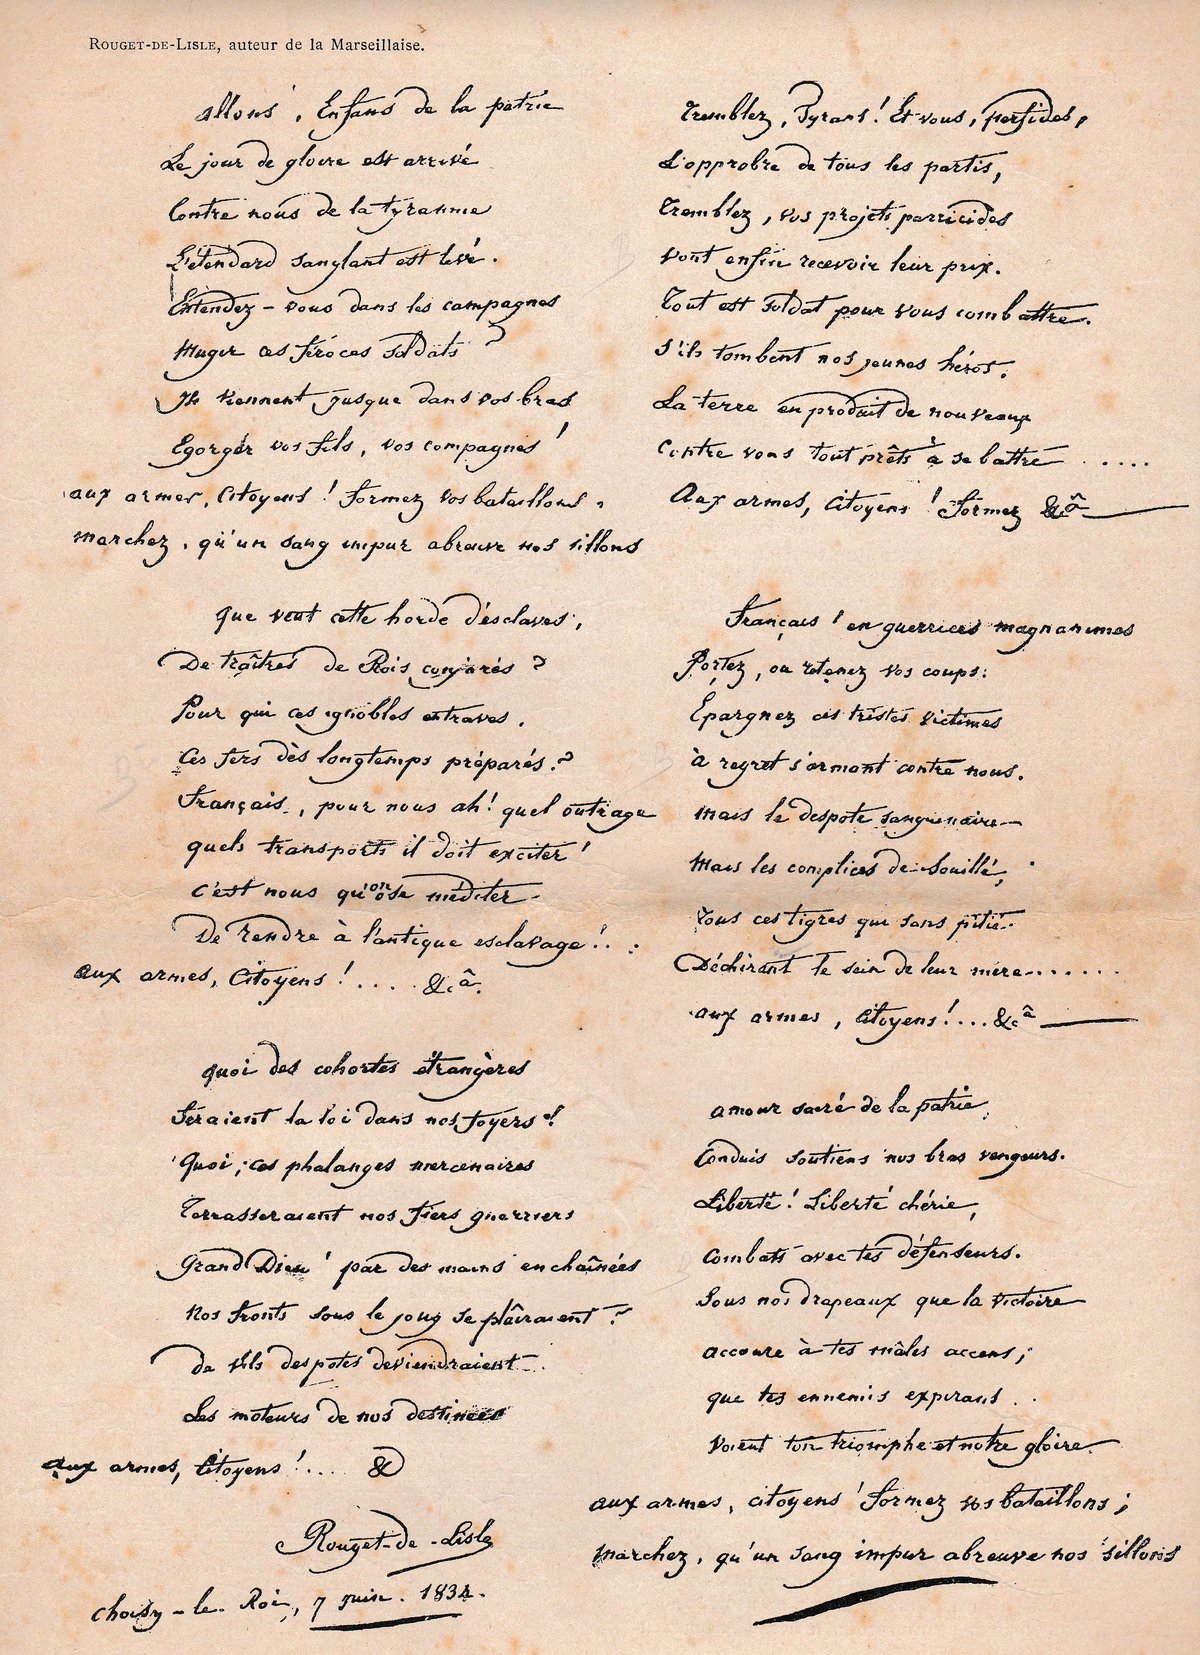 ROUGET-DE-LISLE, auteur de la Marseillaise.
Allons, Enfans de la patrie
Le jour de gloire est arrivé
Contre nous de la tyrannie
L'étendard sanglant est levé.
Entendez-vous dans les campagnes
Mugir ces féroces soldats ?
Ils viennent jusque dans vos bras
Egorger vos fils, vos compagnes !
aux armes, Citoyens ! formez vos bataillons,
marchez, qu'un sang impur abreuve nos sillons
Que veut cette horde d'esclaves,
De traîtres de Rois conjurés ?
Pour qui ces ignobles entraves,
Ces fers dès longtemps préparés ?
français, pour nous ah ! quel outrage
quels transports il doit exciter !
C'est nous qu'on ose méditer
De rendre à l'antique esclavage !..
aux armes, Citoyens !.... &.â.
quoi des cohortes étrangères
feraient la loi dans nos foyers !
Quoi, ces phalanges mercenaires
Terrasseraient nos fiers guerriers
Grand Dieu ! par des mains enchaînées
Nos fronts sous le joug se plâiraient ?
de vils despotes deviendraient
Les moteurs de nos destinées
aux armes, Citoyens !.... &
Rouget-de-Lisle
Choisy-le-Roi, 7 juin. 1834.
Tremblez, Tyrans ! Et vous, perfides,
L'opprobre de tous les partis,
Tremblez, vos projets parricides
vont enfin recevoir leur prix.
Tout est soldat pour vous combattre.
S'ils tombent nos jeunes héros.
La terre en produit de nouveaux
Contre vous tout prêts à se battre ....
Aux armes, Citoyens ! formez &.â
français ! en guerriers magnanimes
Portez, ou retenez vos coups:
Epargnez ces tristes victimes
à regret s'armant contre nous.
mais le despote sanguinaire
Mais les complices de Bouillé,
Tous ces tigres qui sans pitié
Déchirant le sein de leur mère.......
aux armes, Citoyens !....&.â
amour sacré de la patrie,
Conduis soutiens nos bras vengeurs.
Liberté ! Liberté chérie,
Combats avec tes défenseurs.
Sous nos drapeaux que la victoire
accoure à tes mâles accens;
que tes ennemis expirans ..
voient ton triomphe et notre gloire.
aux armes, citoyens ! formez vos bataillons;
Marchez, qu'un sang impur abreuve nos sillons